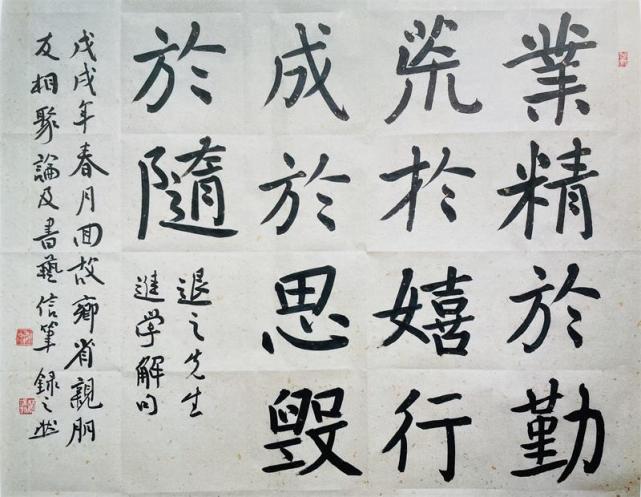 業精於勤
荒於嬉行
成於思毀
於隨
退之先生
進学解句
戊戌年春月回故鄉省親朋
友相聚論及書藝信筆録之